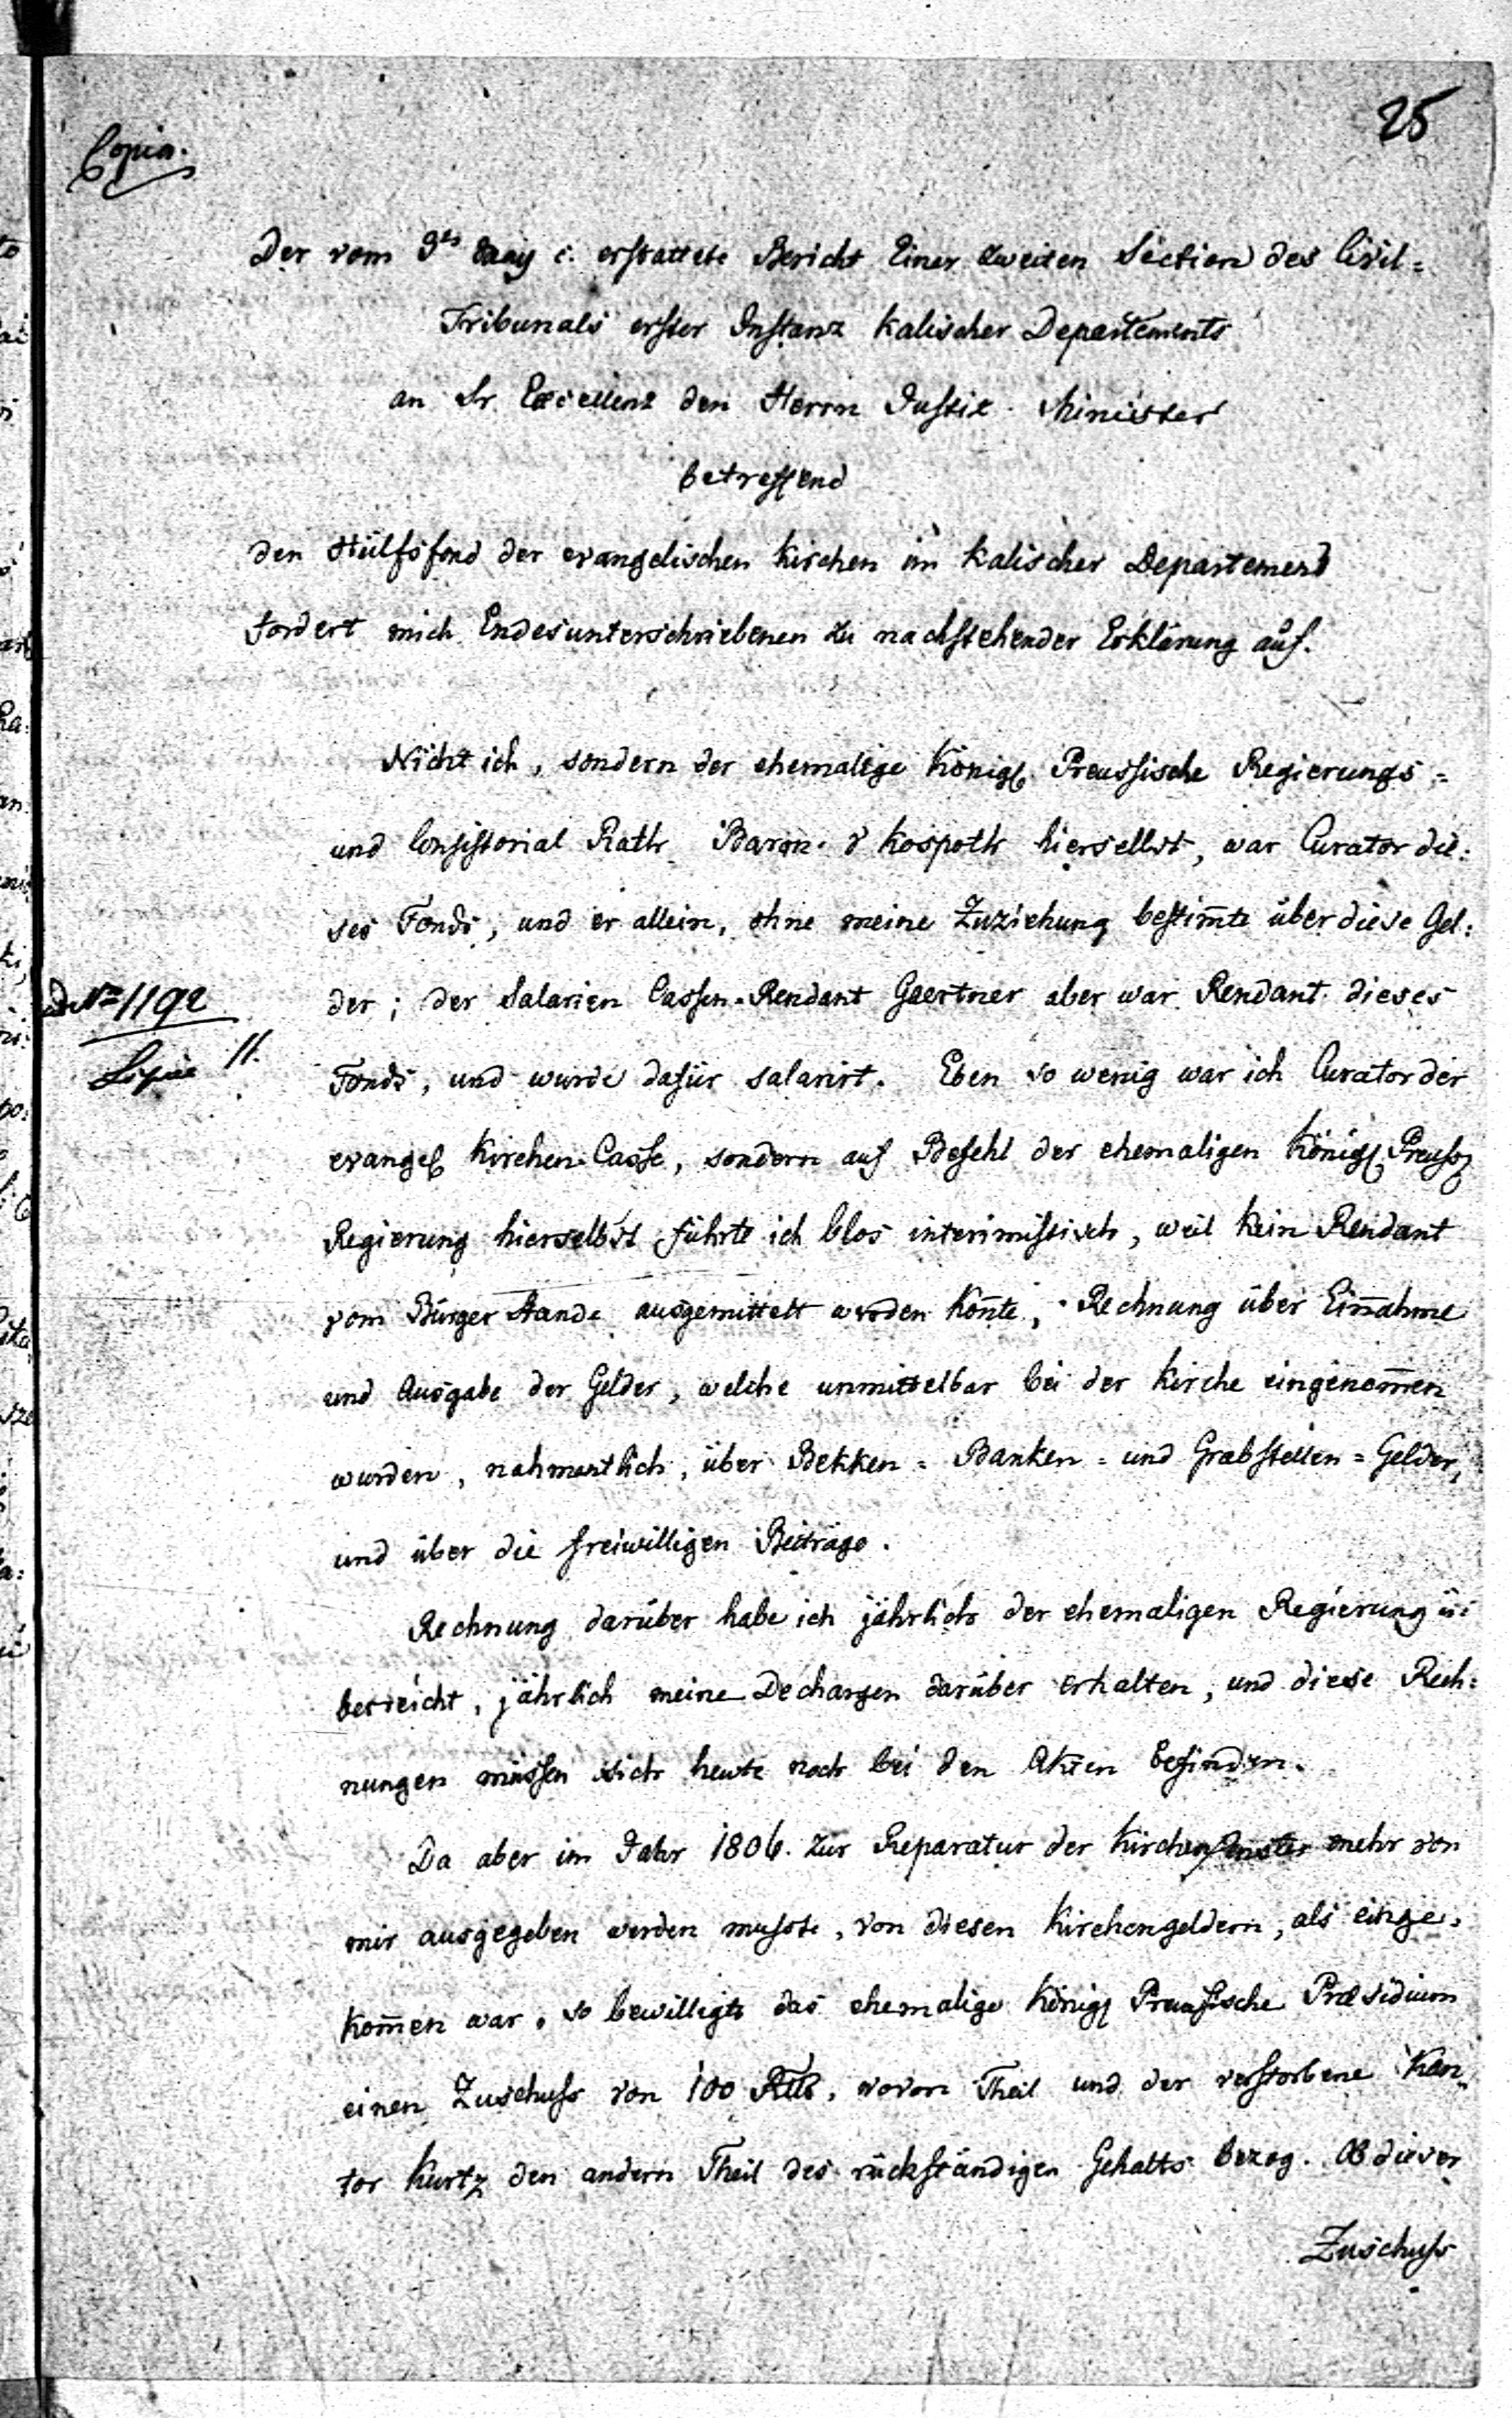 25
Copia.
Der vom 9ts Maÿ c. erstattete Bericht Einer zweiten Section des Civil=
Tribunals erster Instanz Kalischer Departements
an Sr. Excellenz den Herrn Justiz Minister
betreffend
den Hülfsfond der evangelischen Kirchen im Kalischer Departement
fordert mich Endesunterschriebenen zu nachstehender Erklärung auf.
Nicht ich, sondern der ehemalige Königl. Preussische Regierungs=
und Consistorial Rath Baron. v Kospoth hierselbst, war Curator die=
ses Fonds, und er allein, ohne meine Zuziehung bestim̄te über diese Gel=
der; der Salarien Cassen-Rendant Gaertner aber war Rendant dieses
ad No 1192
Lipca 11.
Fonds, und wurde dafür salarirt. Eben so wenig war ich Curator der
evangel Kirchen-Casse, sondern auf Befehl der ehemaligen Königl. Preuss
Regierung hierselbst führte ich blos interimistisch, weil kein Rendant
vom Bürger Stande ausgemittelt werden kon̄te, Rechnung über Ein̄ahme
und Ausgabe der Gelder, welche unmittelbar bei der Kirche eingenom̄en
wurden, nahmentlich, über Bekken= Banken= und Grabstellen= Gelder,
und über die freiwilligen Beiträge.
Rechnung darüber habe ich jährlich der ehemaligen Regierung ü=
berreicht, jährlich meine Dechargen darüber erhalten, und diese Rech=
nungen müssen sich heute noch bei den Akten befinden.
Da aber im Jahr 1806. zur Reparatur der Kirchenfenster mehr von
mir ausgegeben werden musste, von diesen Kirchengeldern, als einge=
kom̄en war, so bewilligte das ehemalige Königl Preussische Præsidium
einen Zuschuss von 100 Rtlr, wovon Theil und der verstorbene Kan=
tor Kurtz den andern Theil des rückständigen Gehalts bezog. Ob dieser
Zuschuss